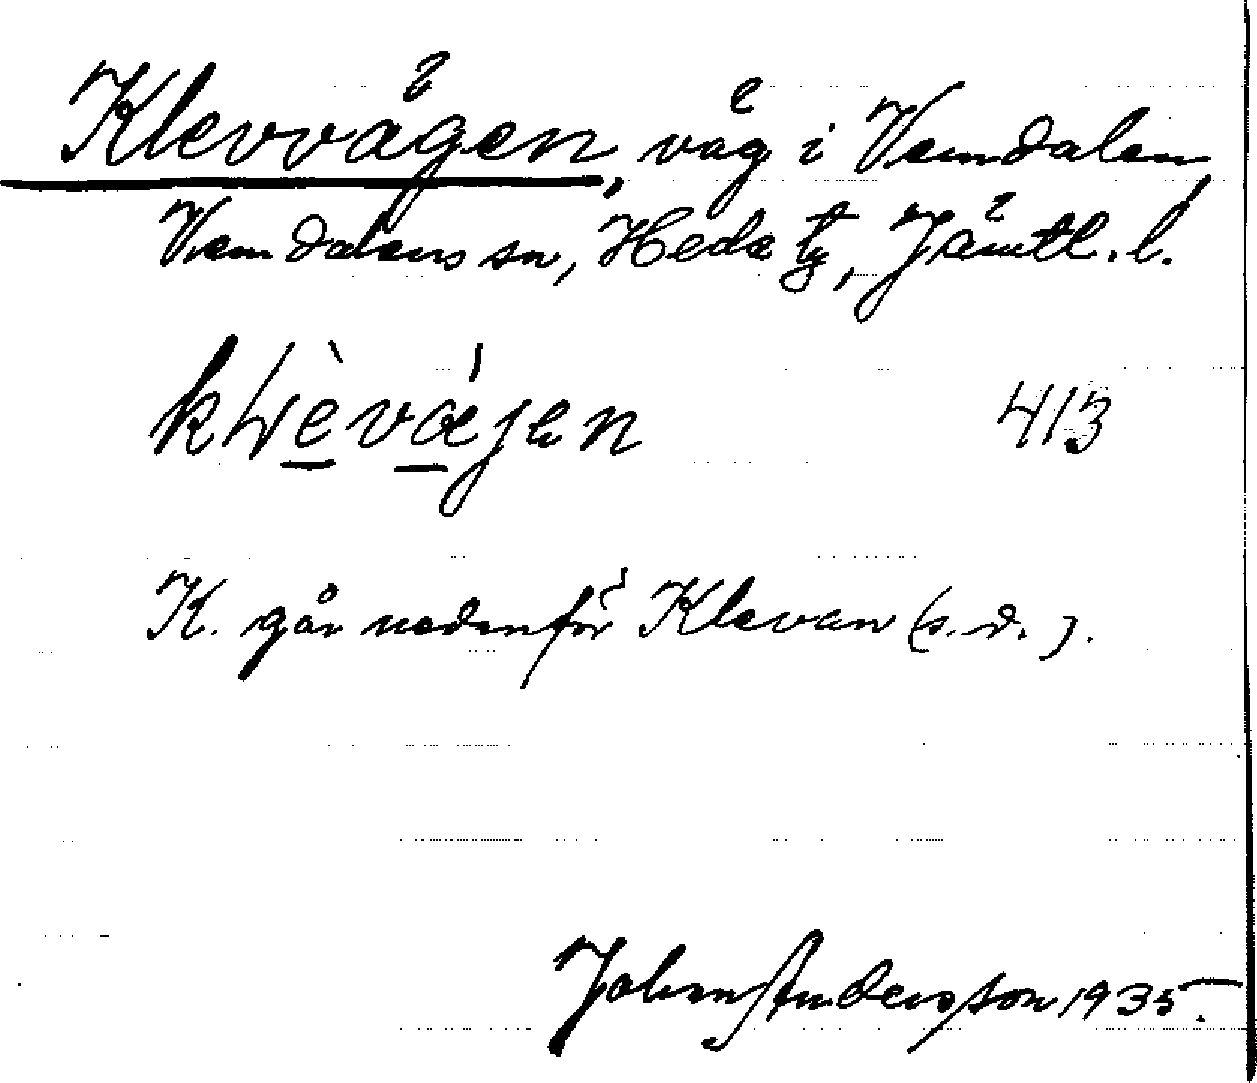 Klevvägen, väg i Vemdalen,
Vemdalens sn, Hede tg, Jämtl. l.
413
K. går nedanför Klevan (s. d.).
Johan Andersson 1935.